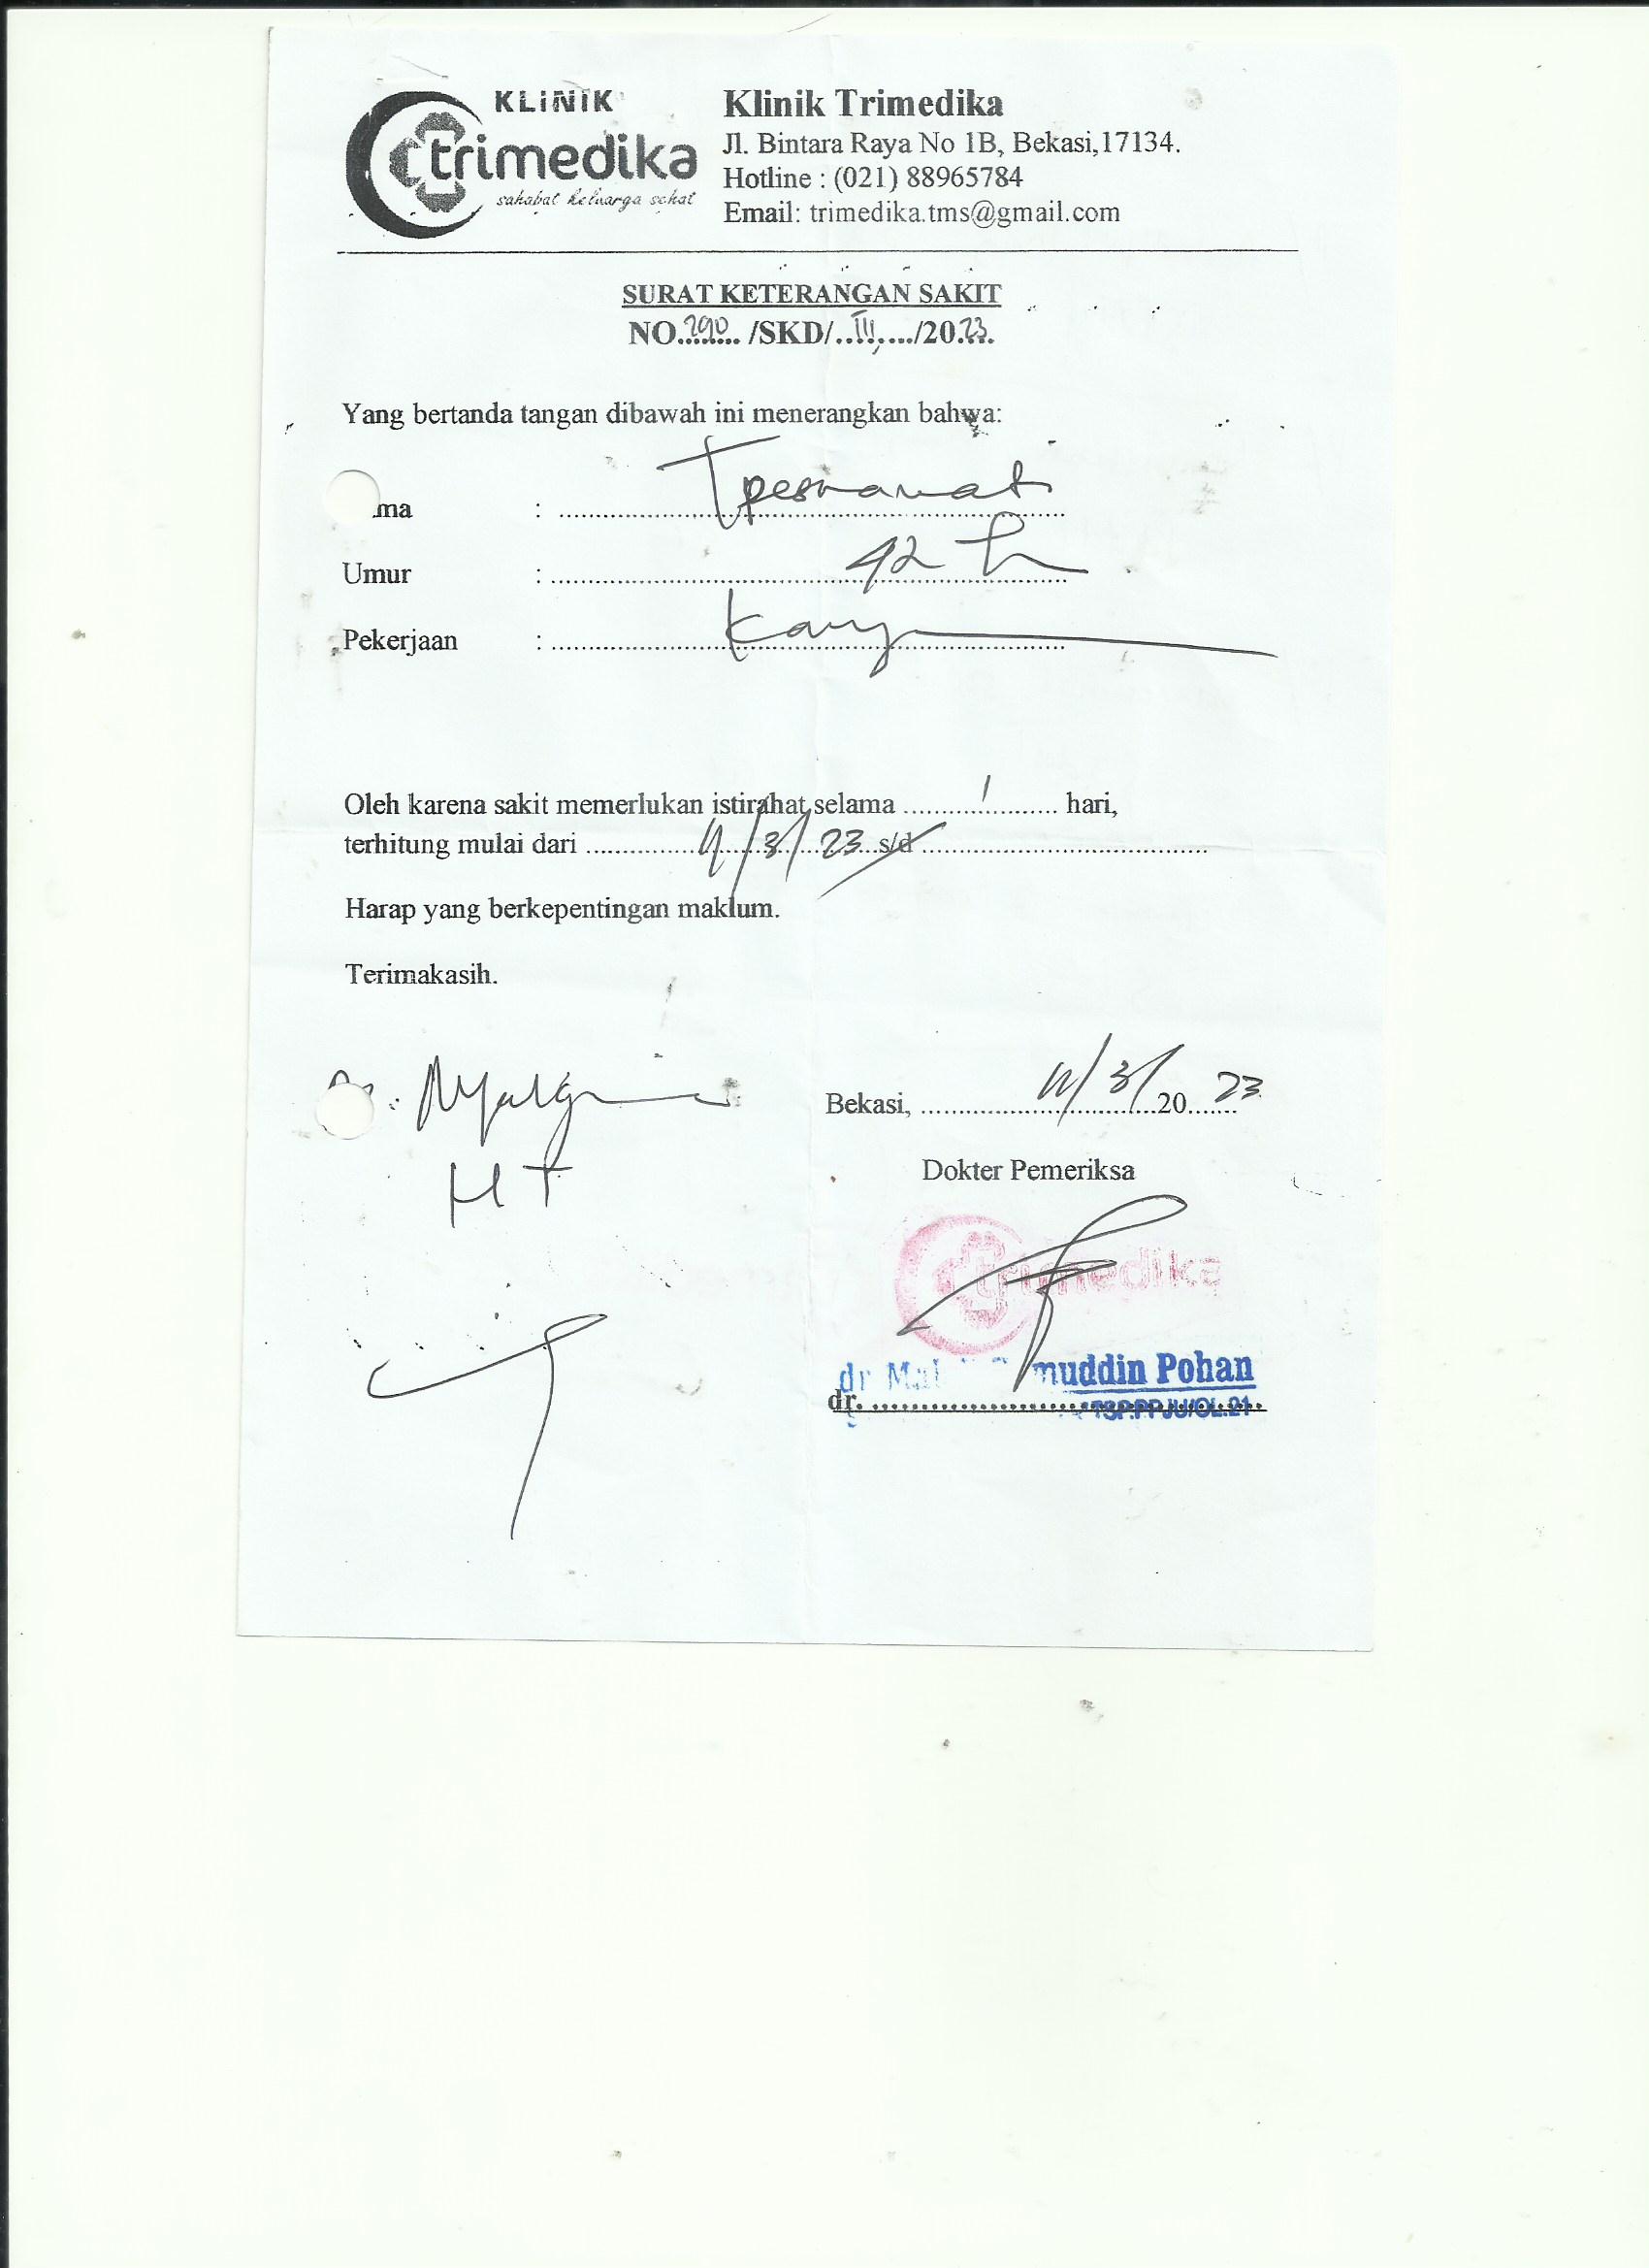 KLINIK
trimedika
sahabat keluarga sehat
Klinik Trimedika
Jl. Bintara Raya No 1B, Bekasi,17134.
Hotline : (021) 88965784
Email: trimedika.tms@gmail.com
SURAT KETERANGAN SAKIT
NO.290 /SKD/ III /2023
Yang bertanda tangan dibawah ini menerangkan bahwa:
ma :
Umur : 42 th
Pekerjaan :
Oleh karena sakit memerlukan istirahat selama 1 hari,
terhitung mulai dari 11/3/23 s/d
Harap yang berkepentingan maklum.
Terimakasih.
Myalgia
HT
Bekasi, 11/3/2023
Dokter Pemeriksa
trimedika
dr muddin Pohan
dr.